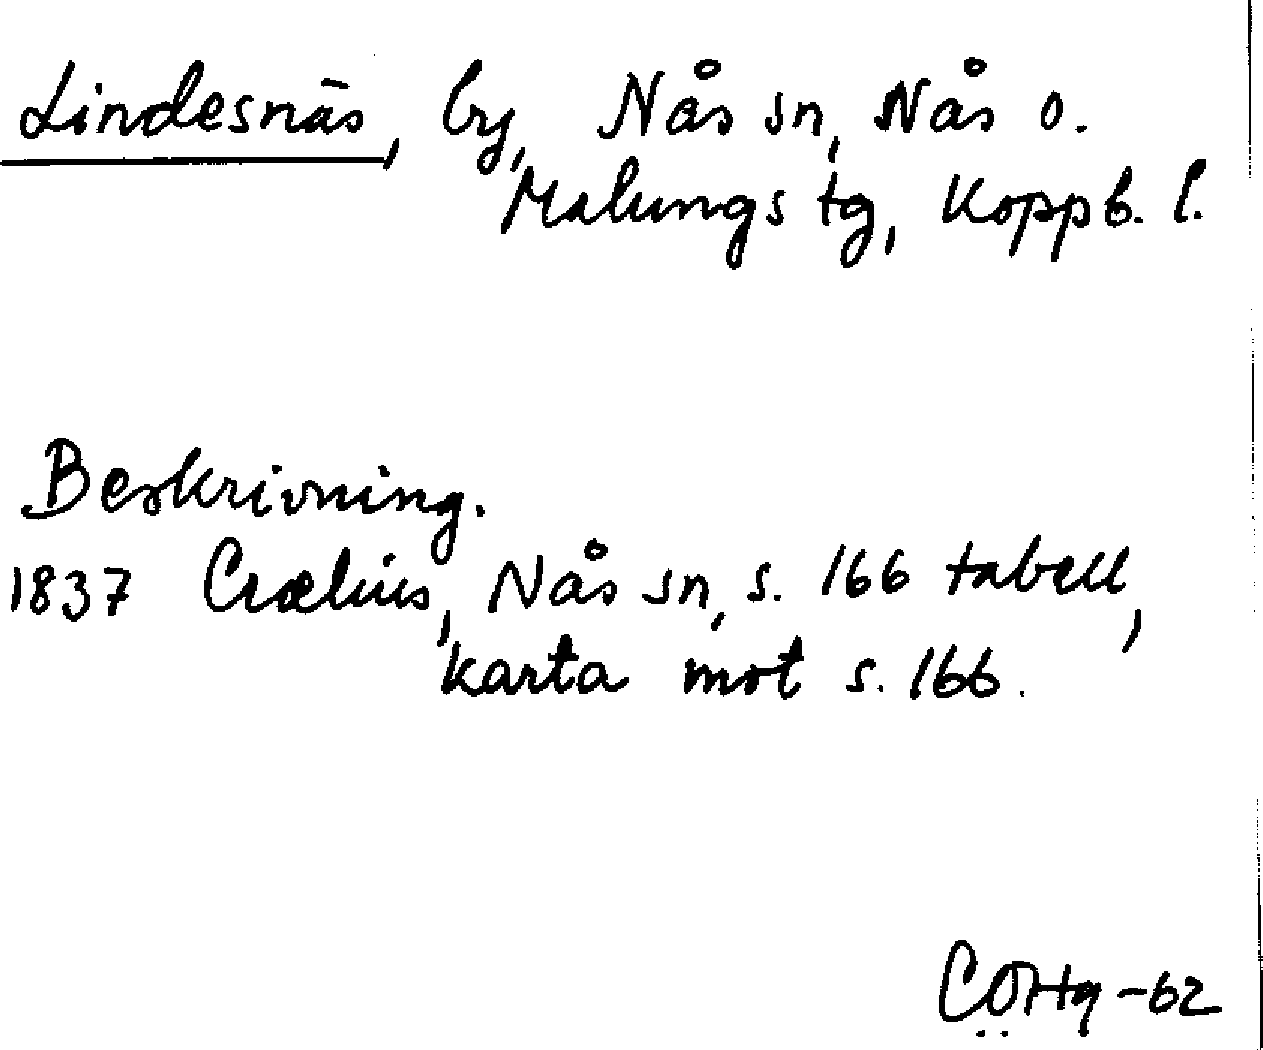 Lindesnäs, by, Nås sn, Nås o.
Malungs tg, Koppb. l.
Beskrivning.
1837 Crælius, Nås sn, s. 166 tabell,
karta mot s. 166.
-62